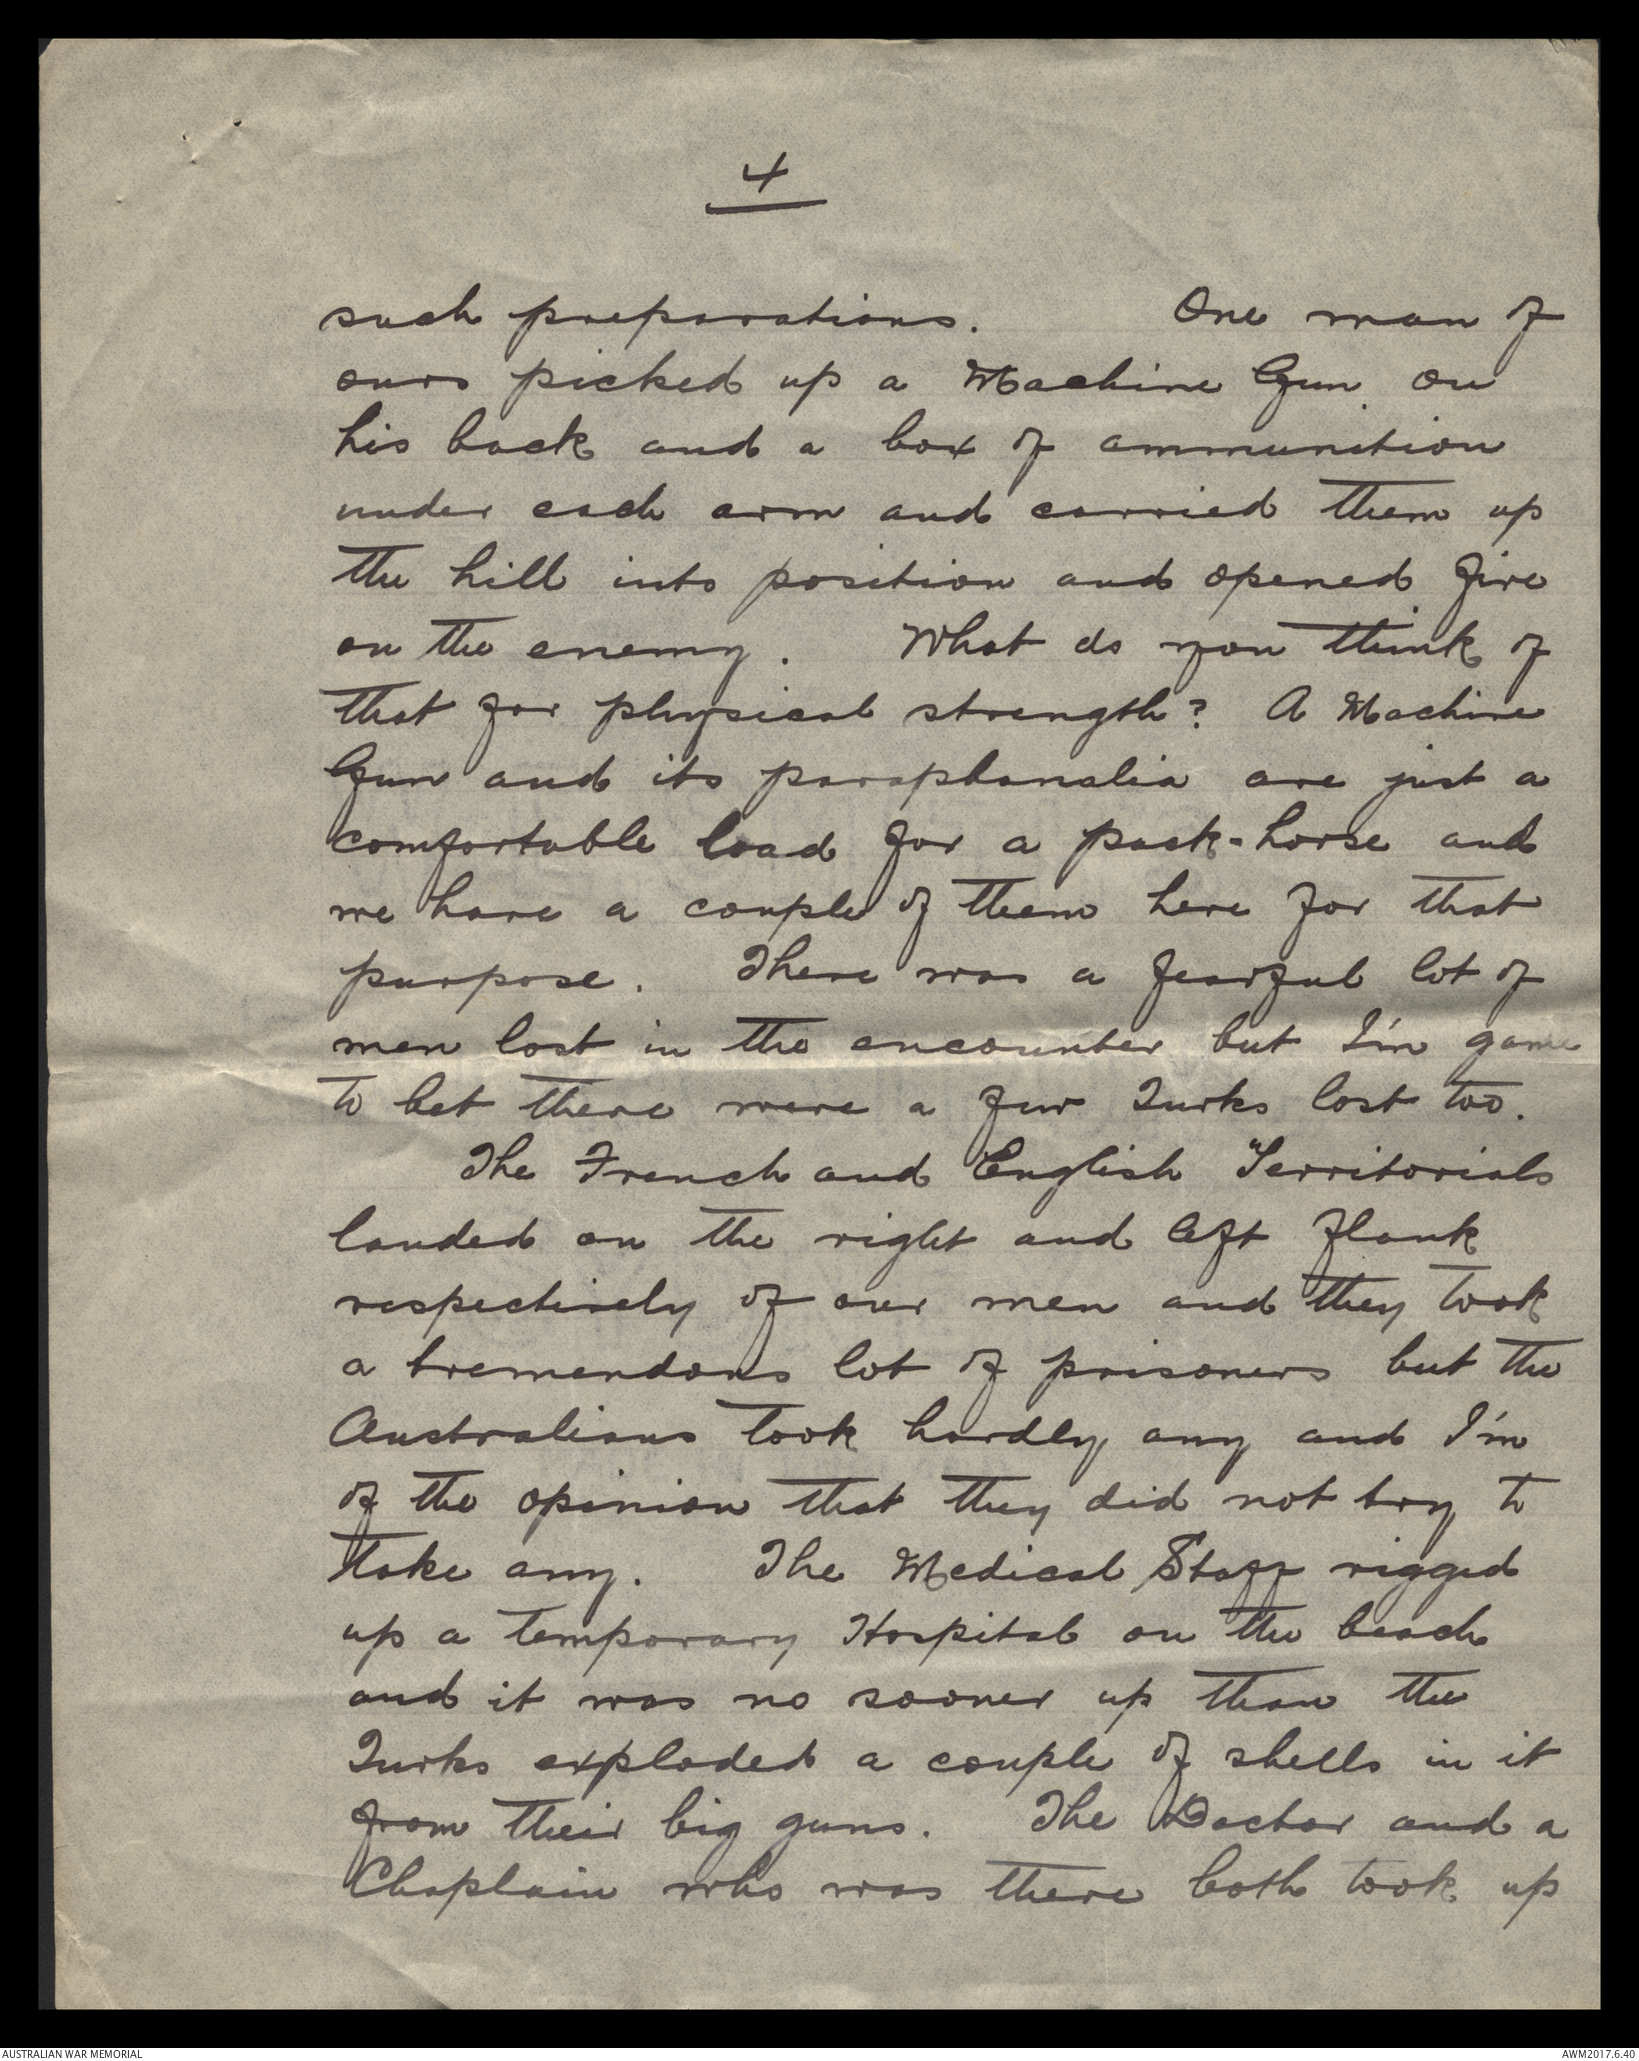 4
such preparations. One man of
ours picked up a Machine Gun on
his back and a box of ammunition
under each arm and carried them up
the hill into position and opened fire
on the enemy. What do you think of
that for physical strength? A Machine
Gun and its paraphanalia are just a
comfortable load for a pack-horse and
we have a couple of them here for that
purpose. There was a fearful lot of
men lost in the encounter but I'm game
to bet there were a few Turks lost too.
The French and English Territorials
landed on the right and left flank
respectively of our men and they took
a tremendous lot of prisoners but the
Australians took hardly any and I'm
of the opinion that they did not try to
take any. The Medical Staff rigged
up a temporary Hospital on the beach
and it was no sooner up than the
Turks exploded a couple of shells in it
from their big guns. The Doctor and a
Chaplain who was there both took up
AUSTRALIAN WAR MEMORIAL
AWM2017.6.40